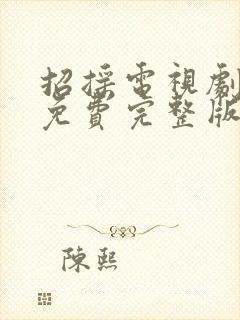 招採電視劇
免費完整版
陳熙